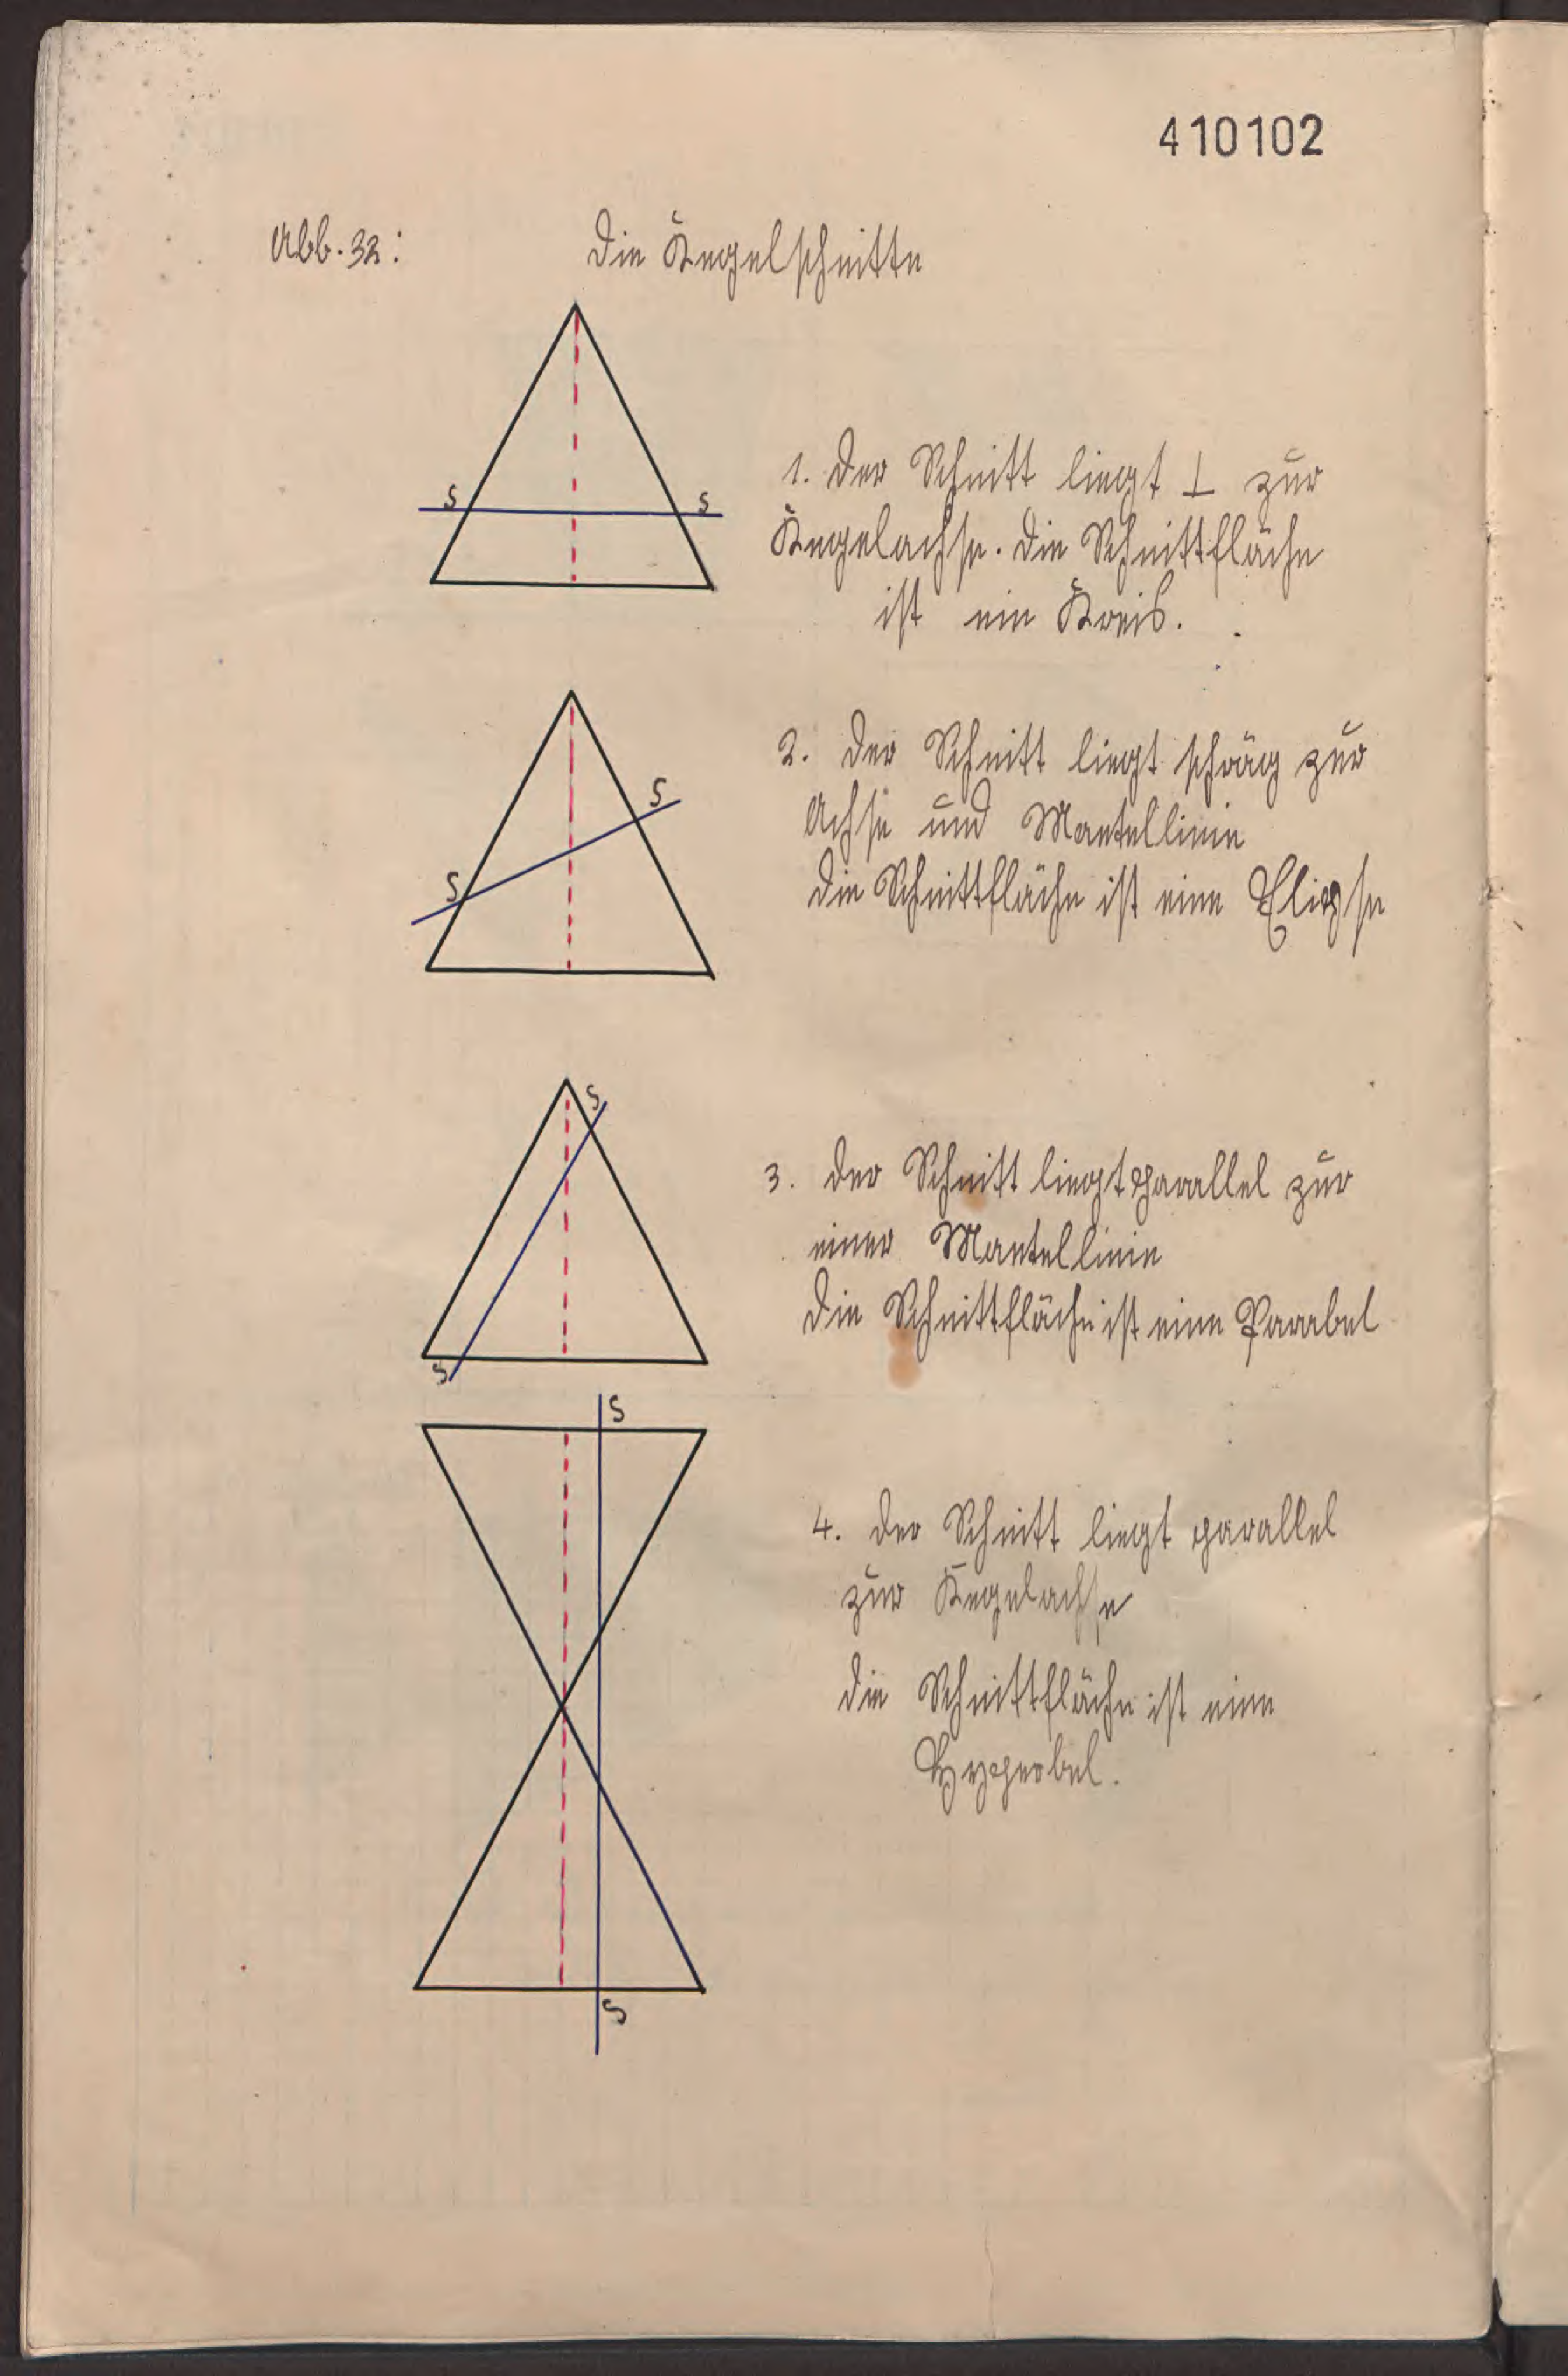 410102
Abb. 32: Die Kegelschnitte
S S
1. Der Schnitt liegt ⊥ zur
Kegelachse. Die Schnittfläche
ist ein Kreis.
2. Der Schnitt liegt schräg zur
S
Achse und Mantellinie
S
Die Schnittfläche ist eine Elipse
S
3. Der Schnitt liegt parallel zur
einer Mantellinie
Die Schnittfläche ist eine Parabel
S
S
4. Der Schnitt liegt parallel
zur Kegelachse
die Schnittfläche ist eine
Hyperbel.
S